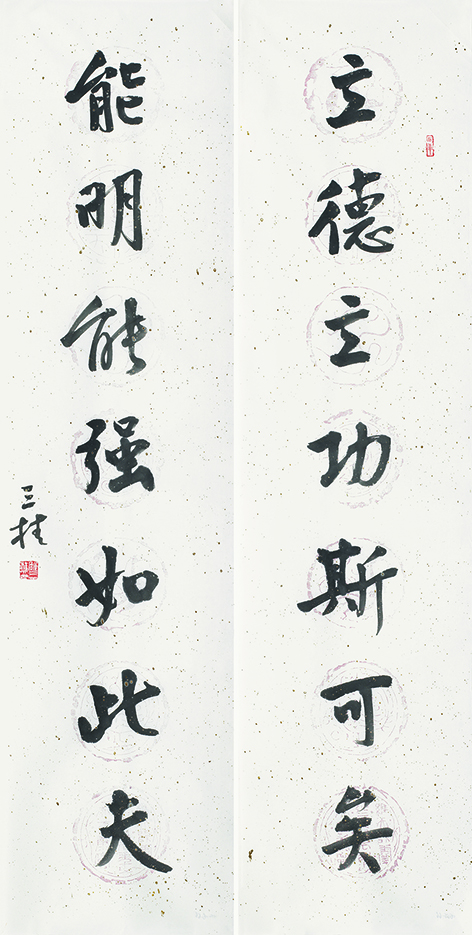 立德立功斯可矣
能明能强如此夫
三桂